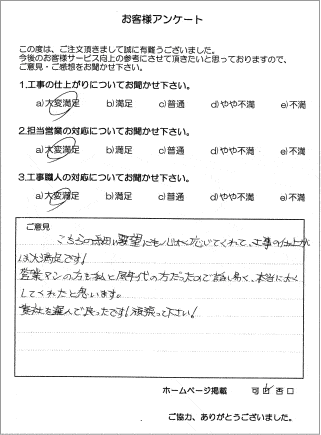 お客様アンケート
この度は、ご注文頂きまして誠に有難うございました。
今後のお客様サービス向上の参考にさせて頂きたいと思っておりますので、
ご意見・ご感想をお聞かせ下さい。
1.工事の仕上がりについてお聞かせ下さい。
a)大変満足 b)満足 c)普通 d)やや不満 e)不満
2.担当営業の対応についてお聞かせ下さい。
a)大変満足 b)満足 c)普通 d)やや不満 e)不満
3.工事職人の対応についてお聞かせ下さい。
a)大変満足 b)満足 c)普通 d)やや不満 e)不満
ご意見
こちらの細い要望にも心よく応じてくれて、工事の仕上が
は大満足です!
営業マンの方も私と同年代の方だったので話し易く、本当に良く
してくれたと思います。
貴社を選んで良かったです!頑張って下さい!
ホームページ掲載 可 否
ご協力、ありがとうございました。